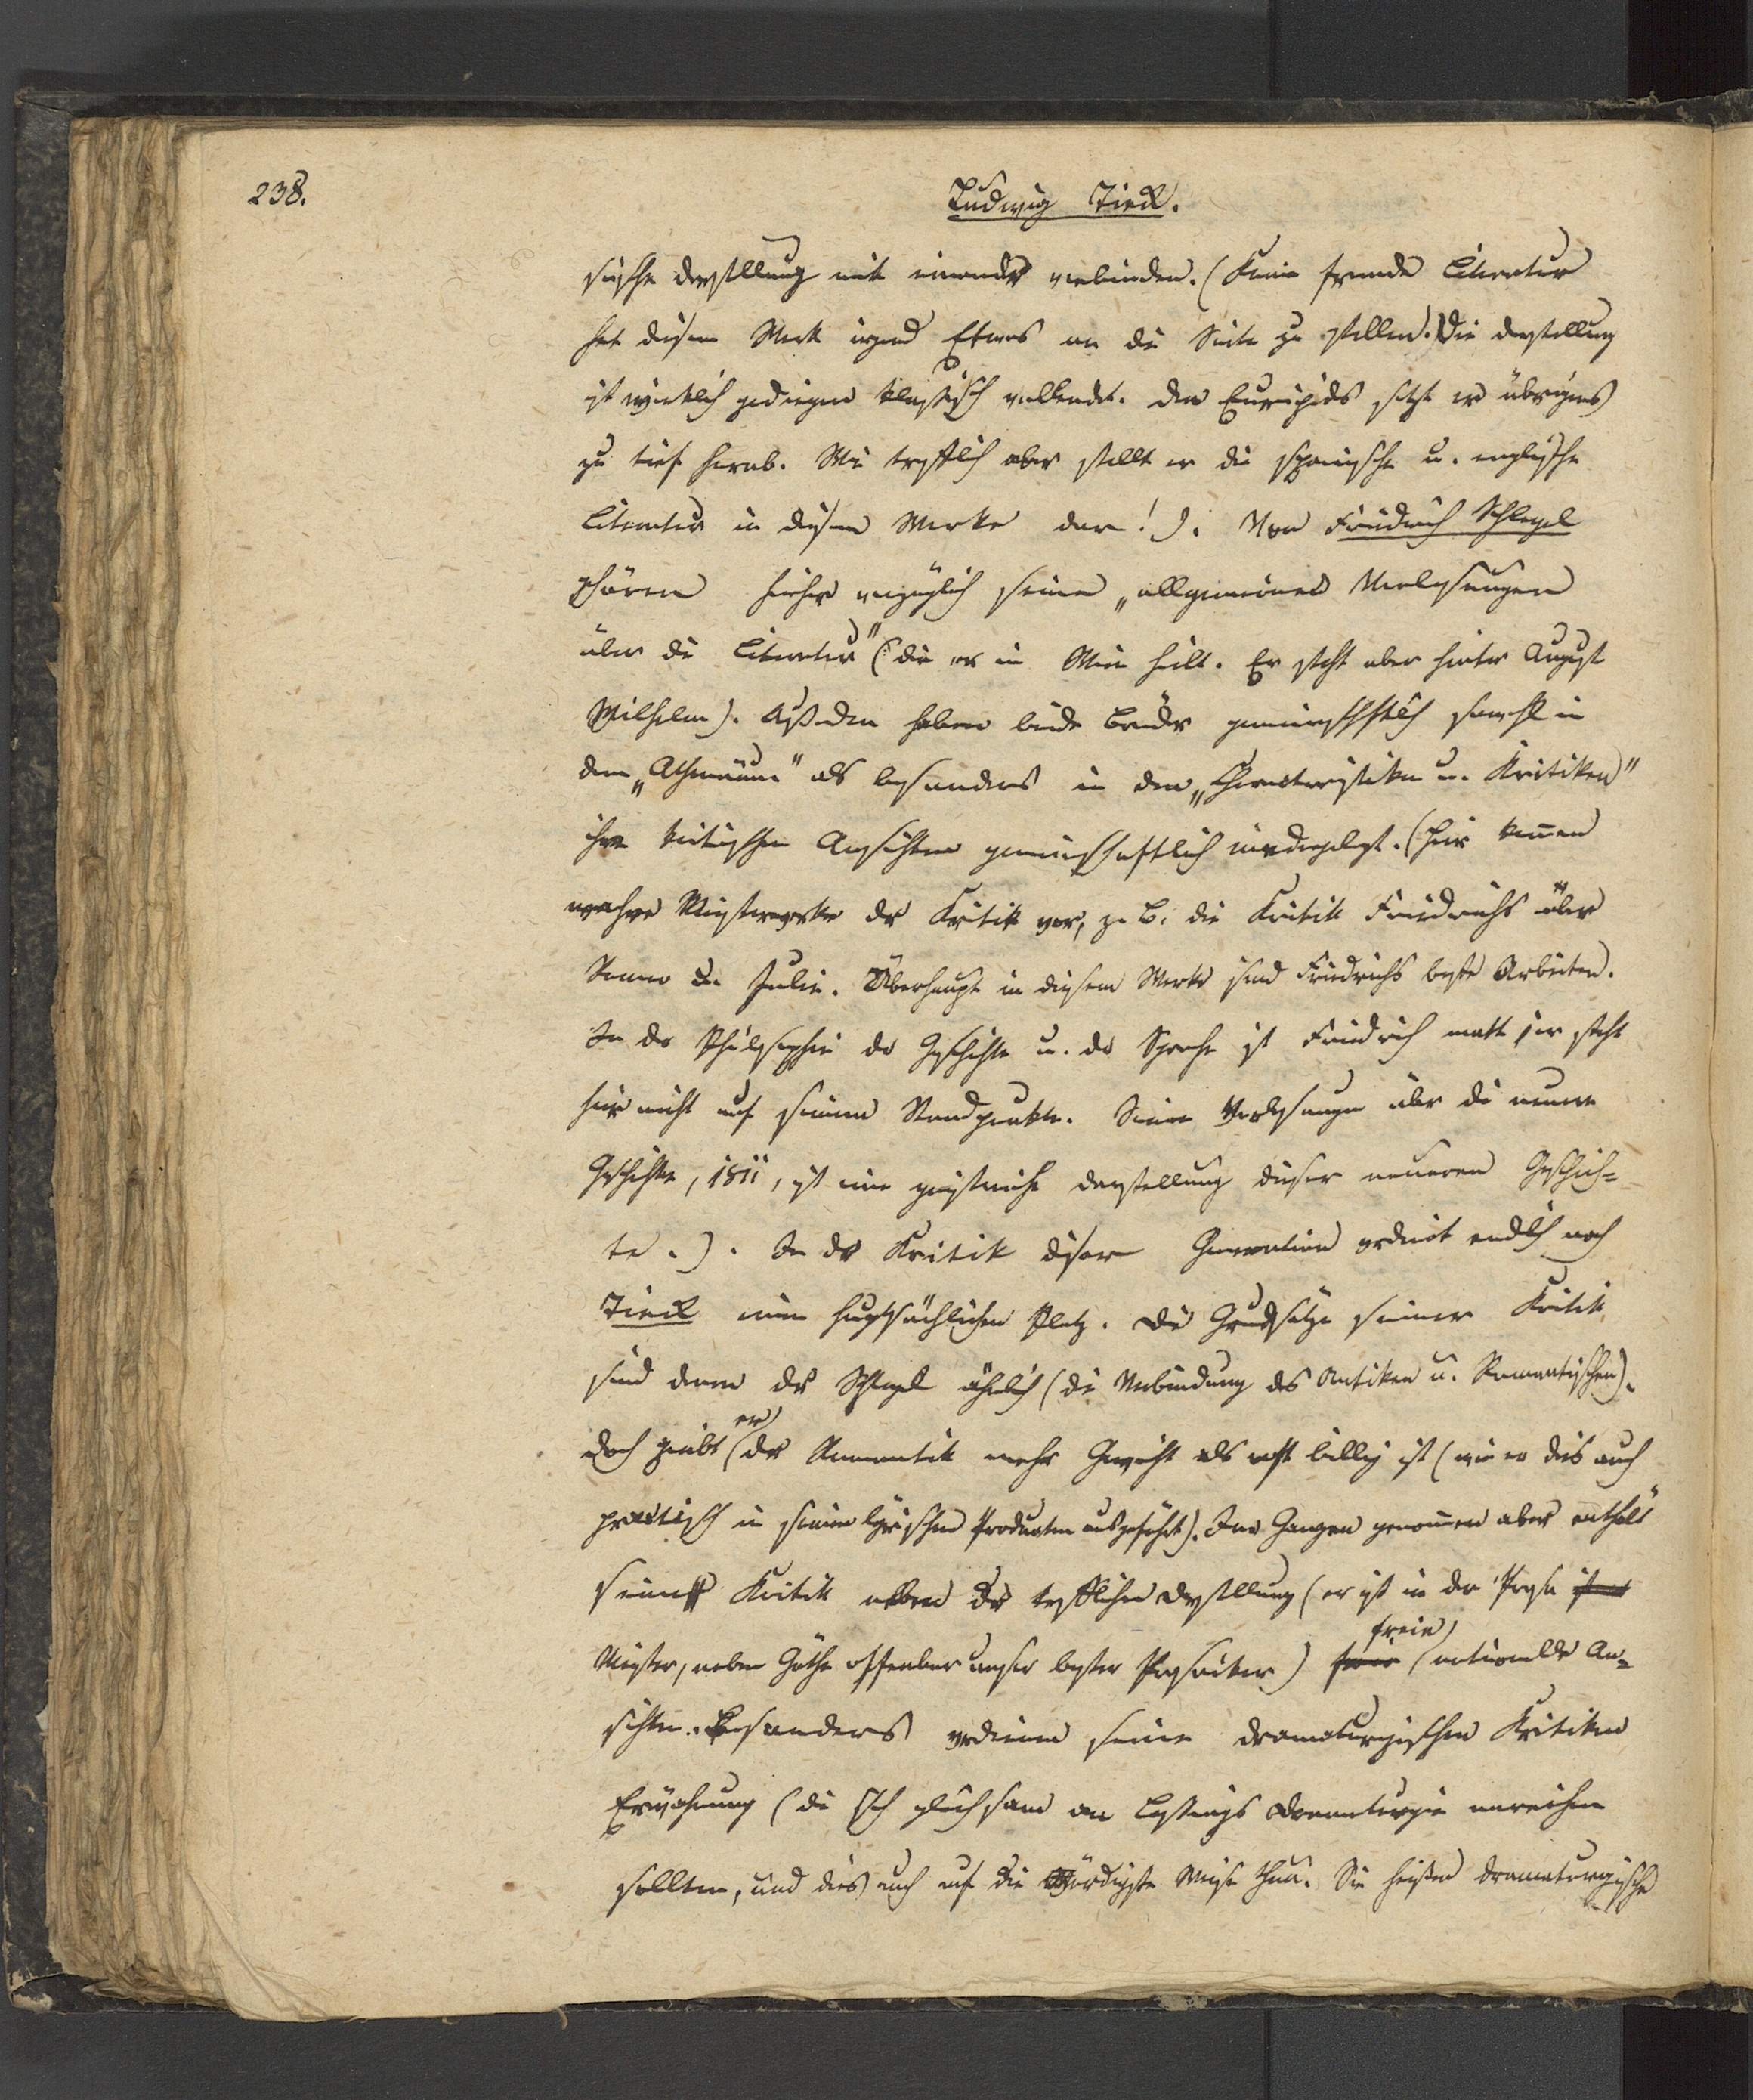 238.
Ludwig Tieck.
sische Darstellung mit einander verbinden. (Keine fremde Literatur
hat diesem Werk irgend Etwas an die Seite zu stellen.) Die Darstellung
ist wirklich gediegen klassisch vollendet. Den Euripides setzt er übrigens
zu tief herab. Wie trefflich aber stellt er die spanische u. englische
Literatur in diesem Werke dar!). Von Friedrich Schlegel
gehören hieher vorzüglich seine „allgemeinen Vorlesungen
über die Literatur" (die er in Wien hielt. Er steht aber hinter August
Wilhelm). Außerdem haben beide Brüder gemeinschaftlich sowohl in
dem „Athenäum" als besonders in den „Charakteristiken u. Kritiken"
ihre kritischen Ansichten gemeinschaftlich niedergelegt. (Hier kommen
wahre Meisterwerke der Kritik vor, z. B. die Kritik Friedrichs über
Romeo u. Julie. Überhaupt in diesem Werke sind Friedrichs beste Arbeiten.
In der Philosophie der Geschichte u. der Sprache ist Friedrich matt; er steht
hier nicht auf seinem Standpunkte. Seine Vorlesungen über die neuere
Geschichte, 1811, ist eine geistreiche Darstellung dieser neueren Geschich=
te.). In der Kritik dieser Generation verdient endlich noch
Tieck einen hauptsächlichen Platz. Die Grundsätze seiner Kritik
sind denen der Schlegel ähnlich (die Verbindung des Antiken u. Romantischen).
Doch giebt er der Romantik mehr Gewicht als recht billig ist (wie er dies auch
practisch in seinen lyrischen Producten ausgeführt). Im Ganzen genommen aber enthält
seine Kritik neben der trefflichen Darstellung (er ist in der Prosa
Meister, neben Göthe offenbar unser bester Prosaiker) freie rationelle An=
sichten. Besonders verdienen seine dramaturgischen Kritiken
Erwähnung (die sich gleichsam an Lessings Dramaturgie anreihen
sollten, und dies auch auf die würdigste Weise thun. Sie heißen dramaturgische